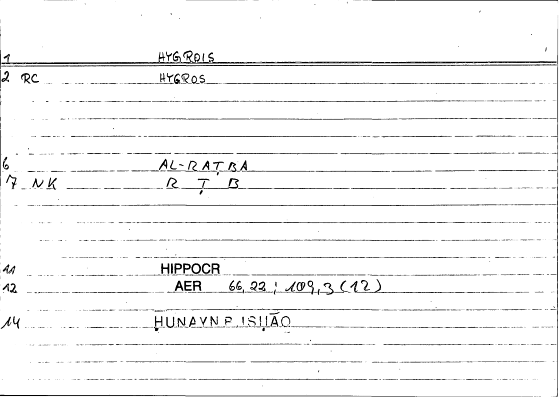 1 HYGROIS
2 RC HYGROS
6 AL-RAṬBA
7 NK R Ṭ B
11 HIPPOCR
12 AER 66,22 ; 109,3 (12)
14 ḤUNAYN